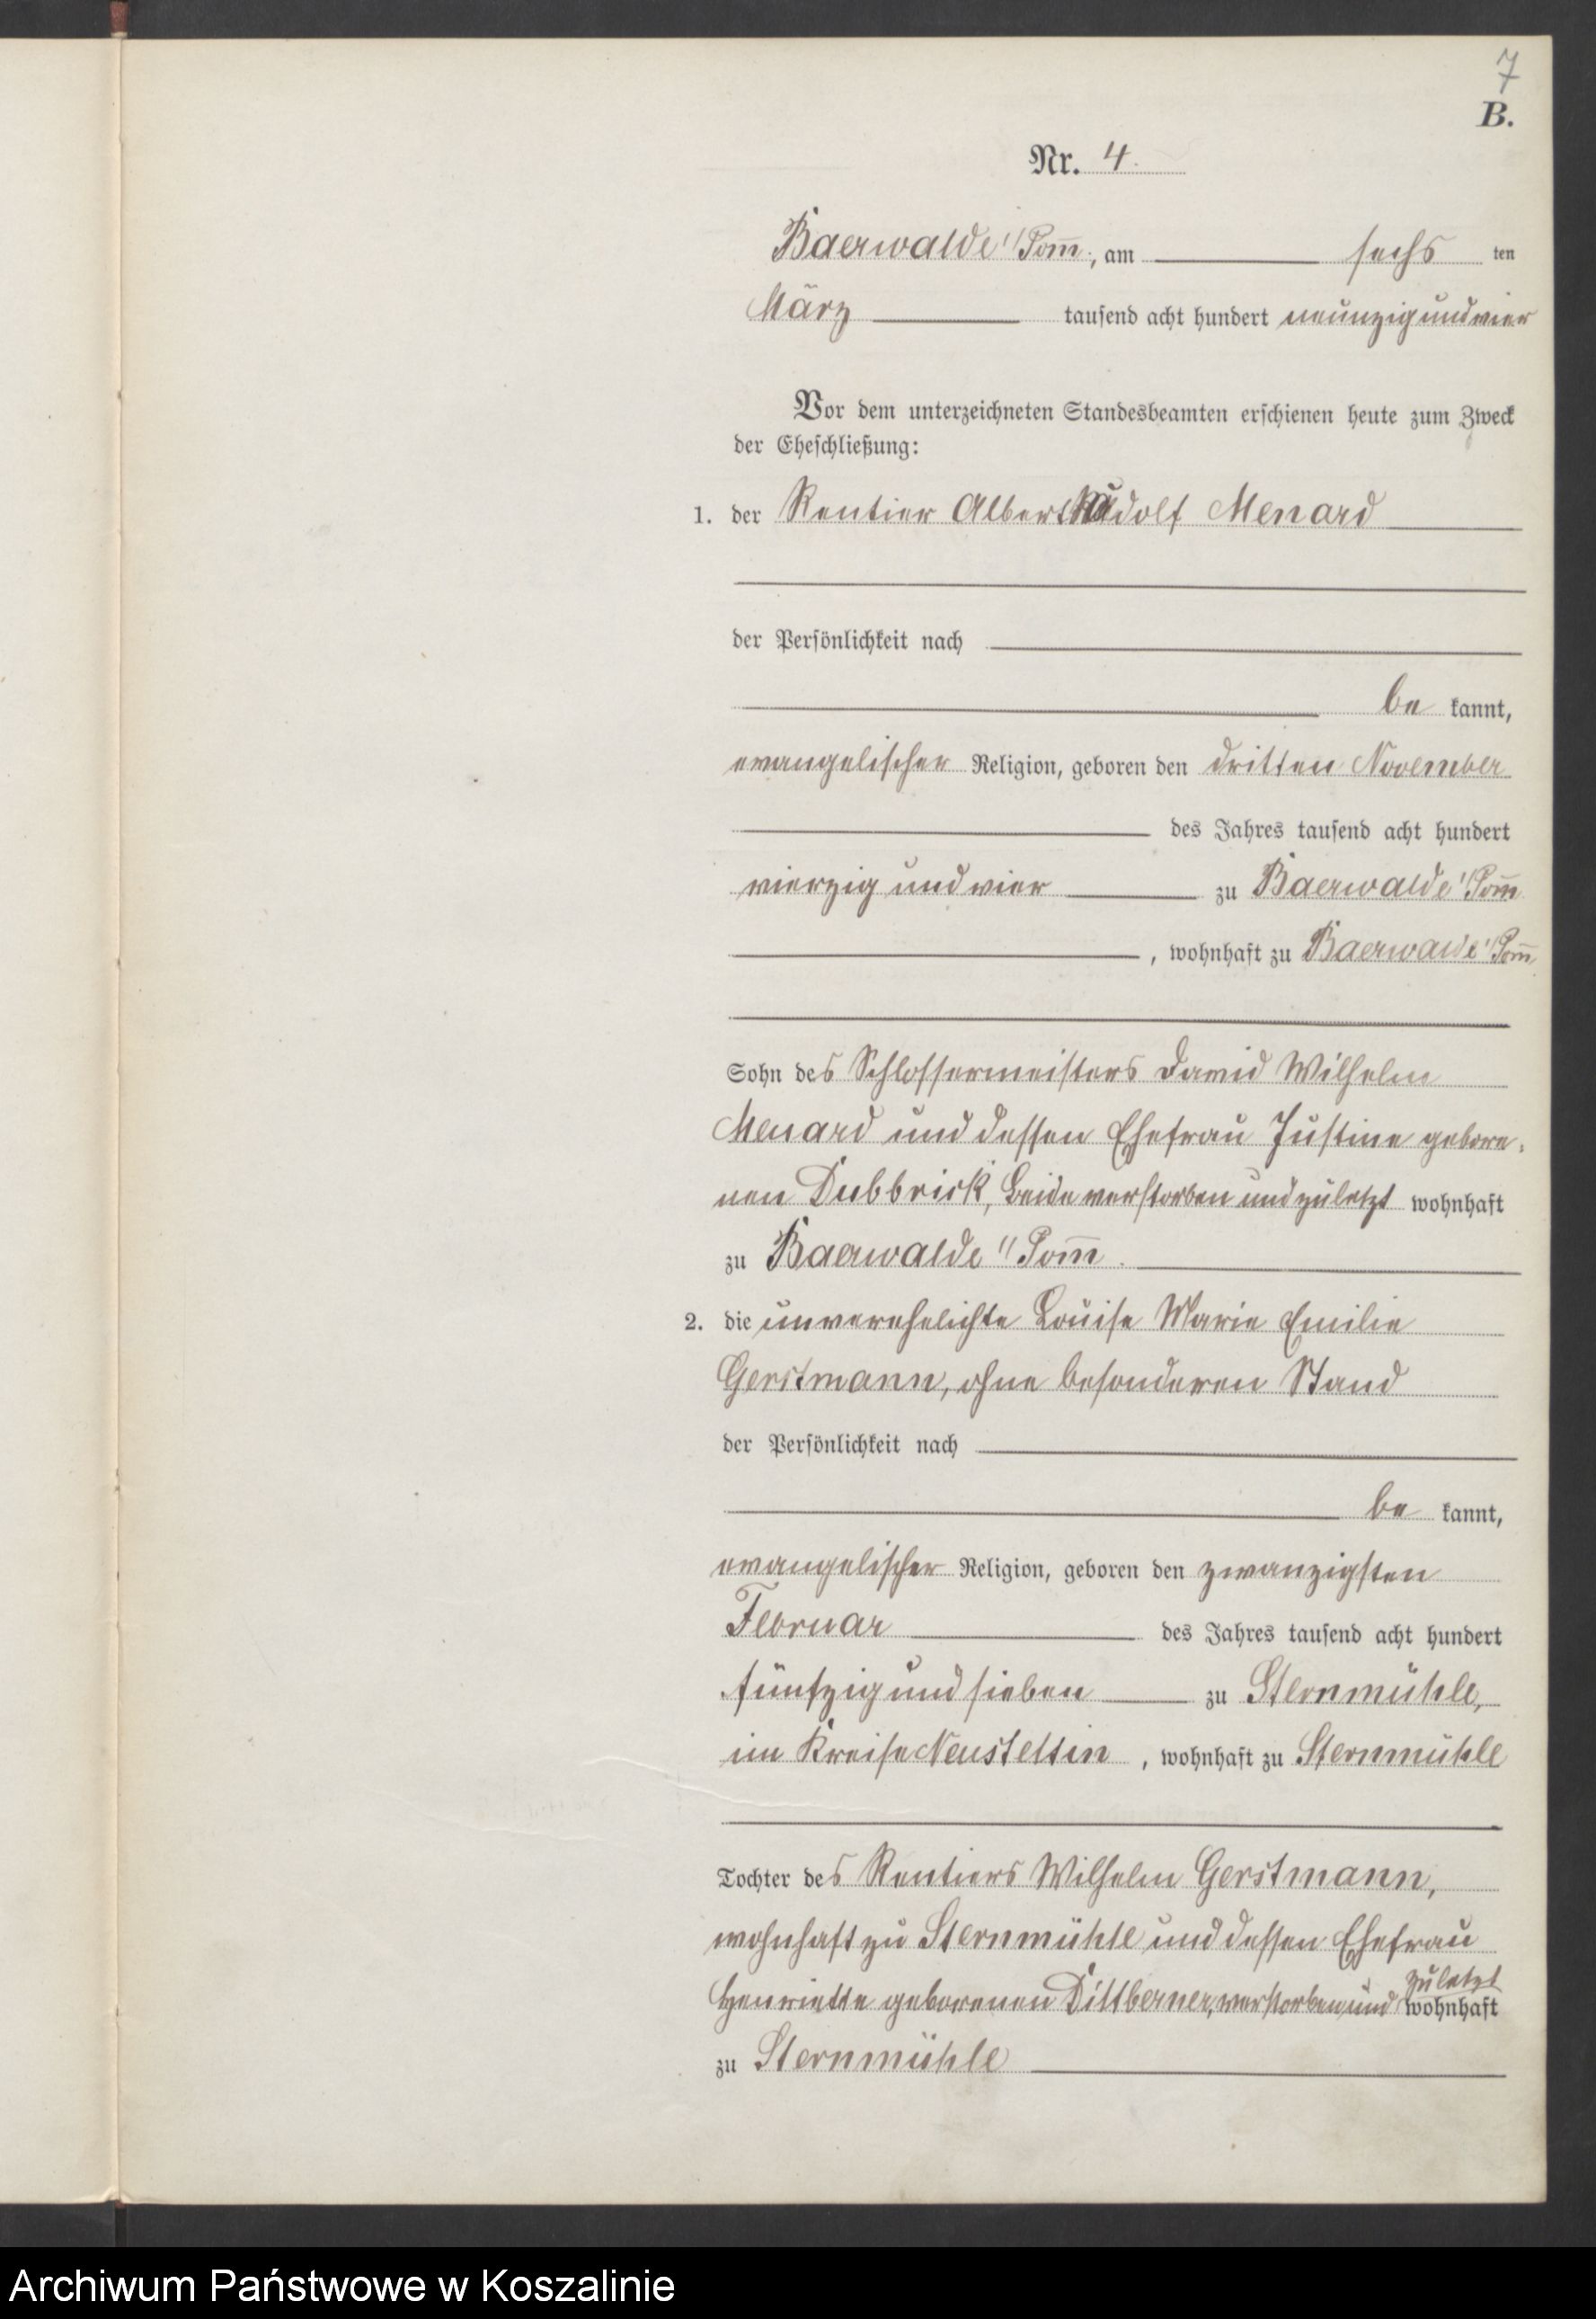 7
B.
Nr. 4.
Baerwalde i/Pom̅., am sechs ten
März tausend acht hundert neunzig und vier
Vor dem unterzeichneten Standesbeamten erschienen heute zum Zweck
der Eheschließung:
1. der Rentier Albert Rudolf Menard
der Persönlichkeit nach
be kannt,
evangelischer Religion, geboren den dritten November
des Jahres tausend acht hundert
vierzig und vier zu Baerwalde i/Pom̅
, wohnhaft zu Baerwalde i/Pom̅.
Sohn des Schlossermeisters David Wilhelm
Menard und dessen Ehefrau Justine gebore-
nen Dubbrick, beide verstorben und zuletzt wohnhaft
zu Baerwalde i/Pom̅.
2. die unverehelichte Louise Marie Emilie
Gerstmann, ohne besonderen Stand
der Persönlichkeit nach
be kannt,
evangelischer Religion, geboren den zwanzigsten
Februar des Jahres tausend acht hundert
fünfzig und sieben zu Sternmühle,
im Kreise Neustettin, wohnhaft zu Sternmühle
Tochter des Rentiers Wilhelm Gerstmann,
wohnhaft zu Sternmühle und dessen Ehefrau
zuletzt
Henriette geborenen Dittberner, verstorben und wohnhaft
zu Sternmühle
Archiwum Państwowe w Koszalinie